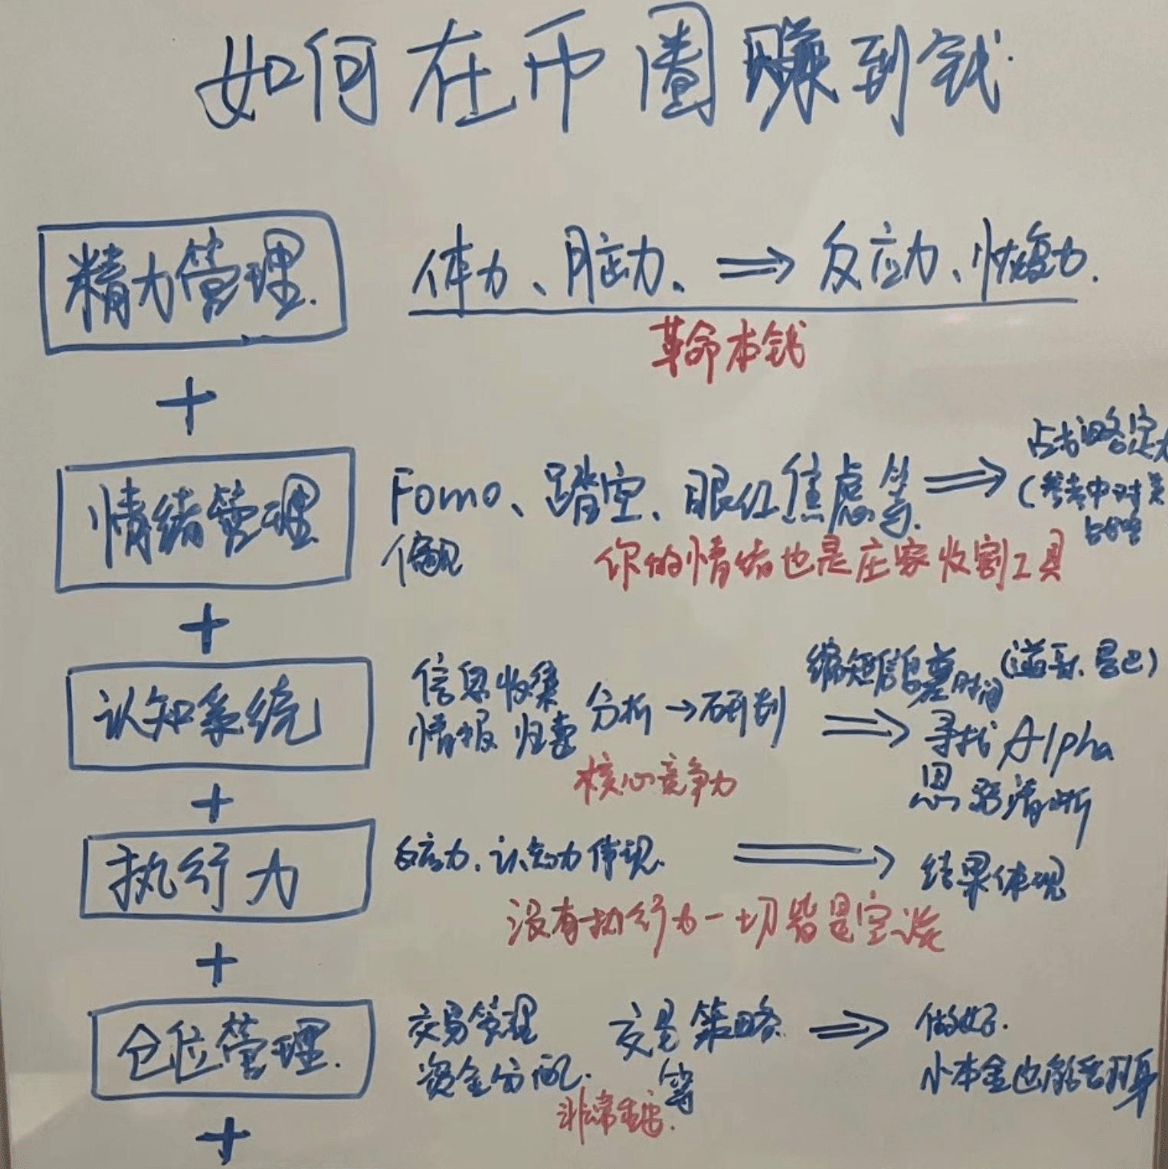 如何在币圈赚到钱
精力管理. 体力、脑力、⇒ 反应力、恢复力.
革命本钱
+
情绪管理 Fomo、踏空、眼红焦虑等. ⇒
偏见
(参考中对
你的情绪也是庄家收割工具
+
认知系统 信息收集 分析→研判 ⇒ 寻找Alpha
情报 归
缩短信息差时间
思路清晰
核心竞争力
+
执行力 反应力.认知力体现. ⇒ 结果体现
没有执行力一切皆是空谈
+
仓位管理. 交易管理 交易策略 ⇒ 做好.
资金分配. 等 小本金也能翻身
非常重要.
+